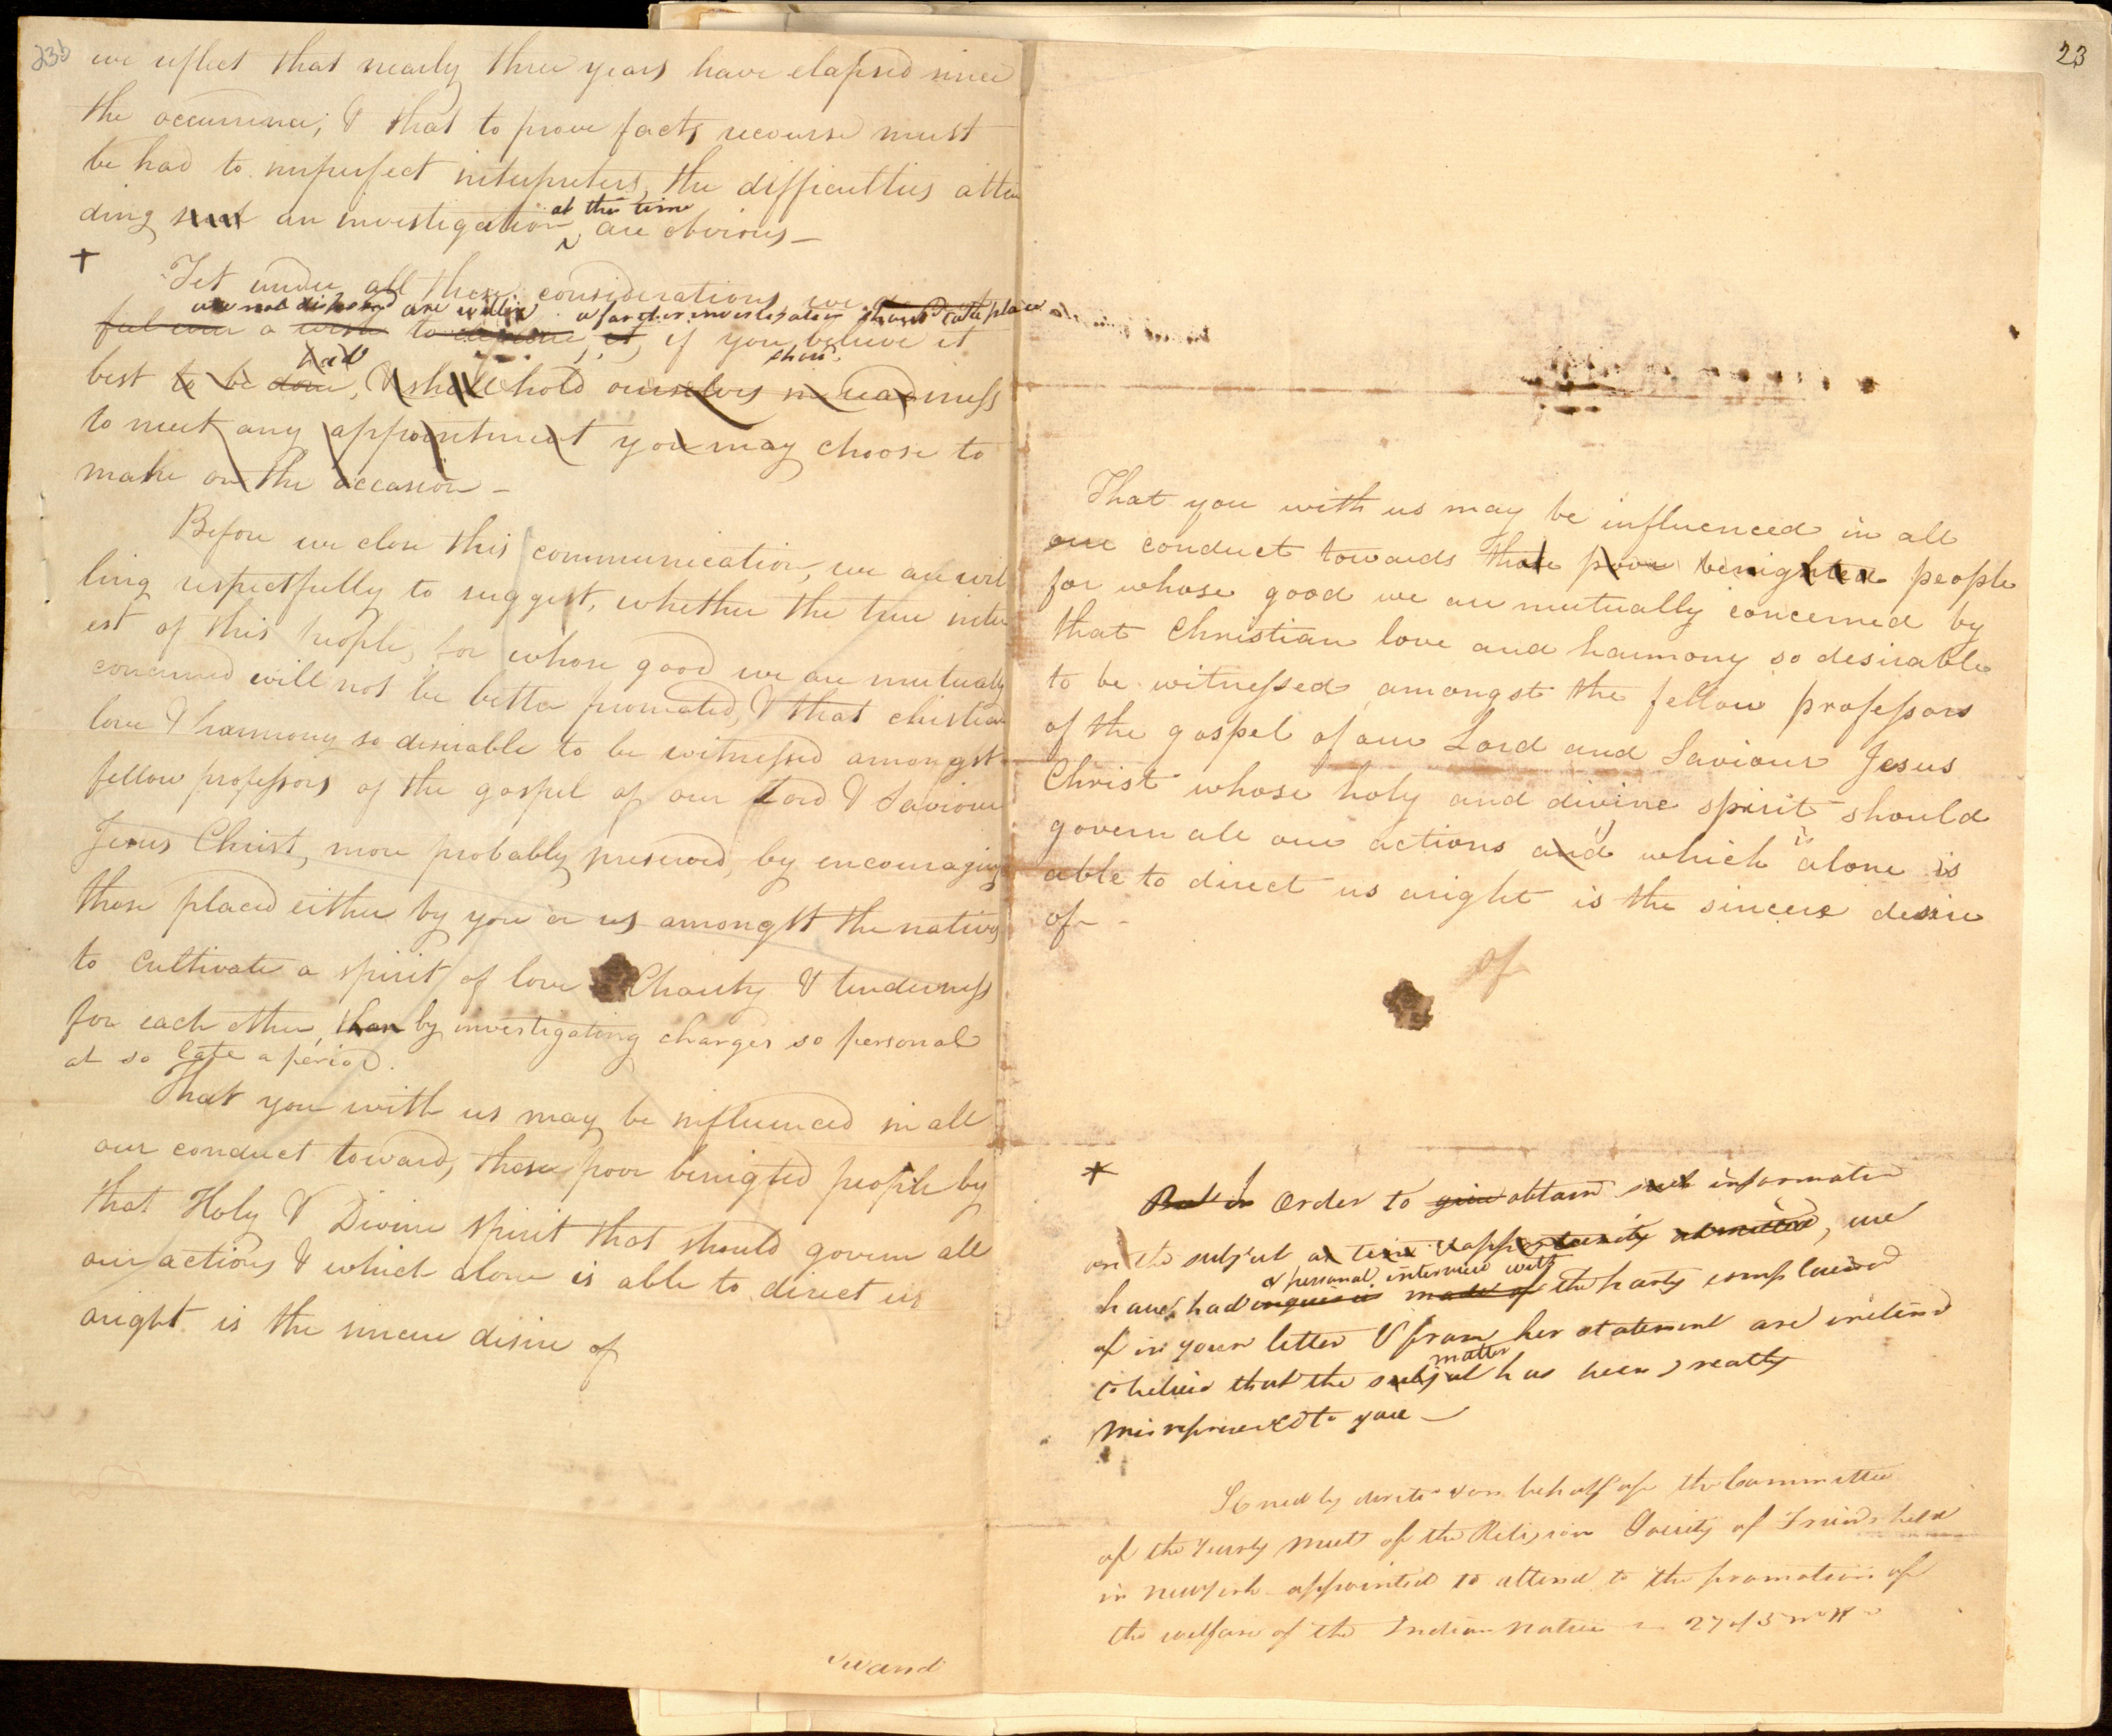 23b
we reflect that nearly three years have elapsed since
the occurrence; & that to prove facts recourse must
be had to imperfect interpreters, the difficulties atten
ding such an investigation at this time are obvious —
+
Yet under all these considerations we
are not disposed are willing a farther investigation should take place
feel even a wish to it, if you believe it
best to be done, had & shall hold ourselves in readiness
to meet any appointment you may choose to
make on the occasion —
Before we close this communication, we are wil
ling respectfully to suggest, whether the true inter
est of this people, for whose good we are mutually
concerned will not be better promoted, & that christian
love & harmony so desirable to be witnessed amongst
fellow professors of the gospel of our Lord & Saviour
Jesus Christ, more probably preserved, by encouraging
those placed either by you or us amongst the natives
to cultivate a spirit of love Charity & tenderness
for each other, than by investigating charges so personal
at so late a period.
That you with us may be influenced in all
our conduct toward, these poor benigted people by
that Holy & Divine spirit that should govern all
our actions & which alone is able to direct us
aright is the sincere desire of
23
That you with us may be influenced in all
our conduct towards that poor benighted people
for whose good we are mutually concerned by
that Christian love and harmony so desirable
to be witnessed amongst the fellow professors
of the gospel of our Lord and Saviour Jesus
Christ whose holy and divine spirit should
govern all our actions and which is alone is
able to direct us aright is the sincere desire
of -
of
*
But in Order to give obtain such information
on the subject as time & opportunity admitted, we
have had inquiries a personal interview with made of the party complained
of in your letter & from her statement are inclined
to believe that the subject matter has been greatly
misrepresented to you —
Signed by direction & on behalf of the Committee
of the Yearly Meet of the Religious Society of Friends held
in New York appointed to attend to the promotion of
the welfare of the Indian Natives 27 of 5